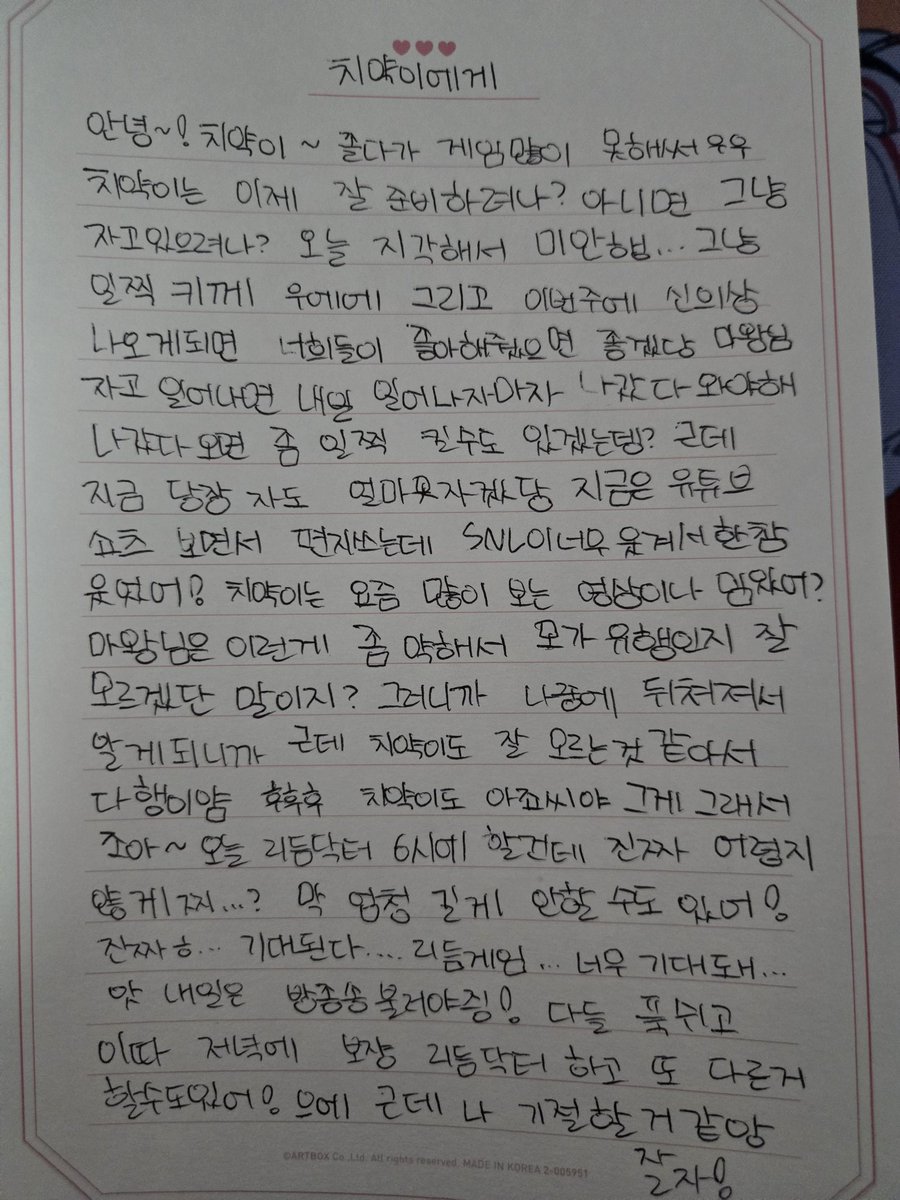 치약이에게
안녕~! 치약이~ 졸다가 게임많이 못해써 우우
치약이는 이제 잘 준비하려나? 아니면 그냥
자고있으려나? 오늘 지각해서 미안햅... 그냥
일찍 키께 우에에 그리고 이번주에 신의상
나오게되면 너희들이 좋아해주겠으면 좋겠당 마왕님
자고 일어나면 내일 일어나자마자 나갔다 와야해
나갔다오면 좀 일찍 킬수도 있겠는뎅? 근데
지금 당장 자도 얼마못자겠당 지금은 유튜브
쇼츠 보면서 편지쓰는데 SNL이너무 웃겨서 한참
웃었어! 치약이는 요즘 많이 보는 영상이나 밈있어?
마왕님은 이런게 좀 약해서 모가 유행인지 잘
모르겠단 말이지? 그러니까 나중에 뒤처져서
알게되니까 근데 치약이도 잘 모르는것 같아서
다행이얌 후후후 치약이도 아죠씨야 그게 그래서
조아~ 오늘 리듬닥터 6시에 할건데 진짜 어렵지
않게찌...? 막 엄청 길게 안할 수도 있어!
잔짜ㅎ... 기대된다.... 리듬게임... 너무 기대돼...
앗 내일은 방종송 불러야징! 다들 푹쉬고
이따 저녁에 보쟝 리듬닥터 하고 또 다른거
할수도있어! 으에 근데 나 기절할거같앙
잘자!
©ARTBOX Co.,Ltd. All rights reserved. MADE IN KOREA 2-005951